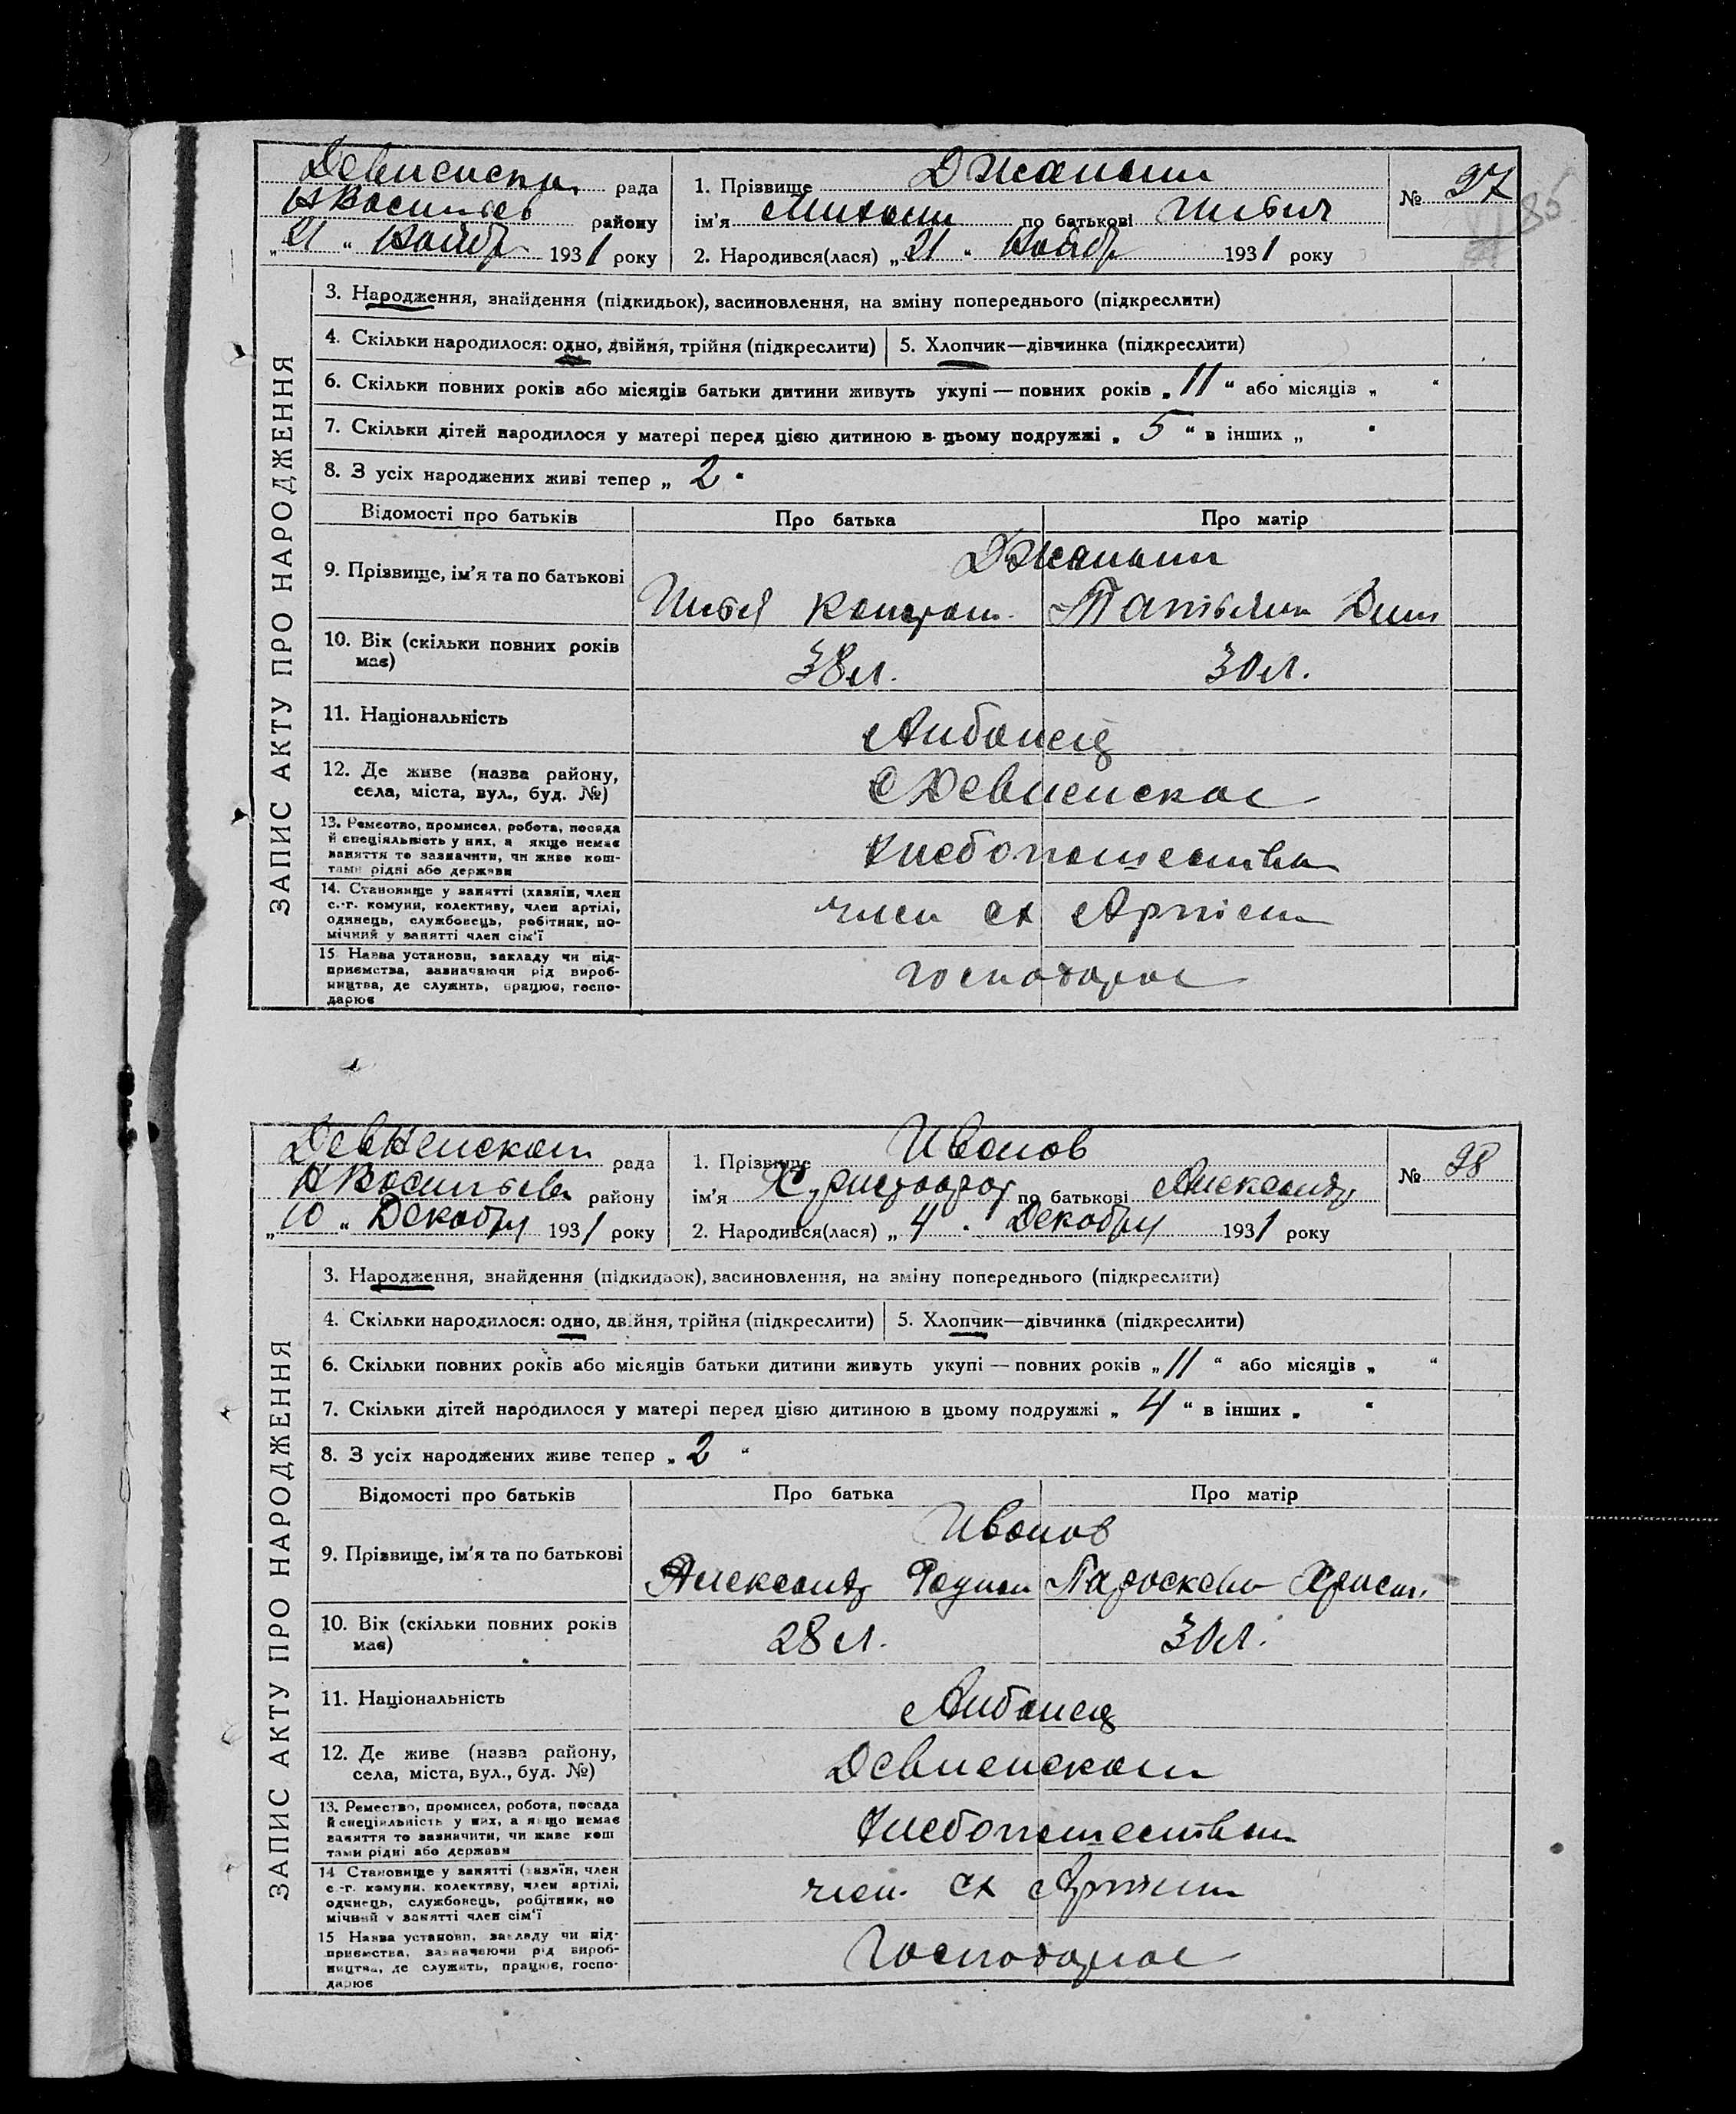 Девненска рада
Н Васильев району
„21“ Ноябр 1931 року
1. Прізвище
ім'я Михаил по батькові Ильич
2. Народився(лася) „21“ Ноябр 1931 року
№ 27
85
ЗАПИС АКТУ ПРО НАРОДЖЕННЯ
3. Народження, знайдення (підкидьок), засиновлення, на зміну попереднього (підкреслити)
4. Скільки народилося: одно, двійня, трійня (підкреслити)
5. Хлопчик—дівчинка (підкреслити)
6. Скільки повних років або місяців батьки дитини живуть укупі — повних років „11“ або місяців „ “
7. Скільки дітей народилося у матері перед цією дитиною в цьому подружжі „5“ в інших „ “
8. З усіх народжених живі тепер „2“
Відомості про батьків Про батька Про матір
9. Прізвище, ім'я та по батькові
Илья Констан. Татьяна Дми
10. Вік (скільки повних років має) 38 л. 30 л.
11. Національність Албанец
12. Де живе (назва району,
села, міста, вул., буд. №)
С Девненское
13. Ремество, промисел, робота, посада
й спеціяльність у них, а якщо немає
заняття то зазначити, чи живе кош-
тами рідні або держави
Хлебопашества
14. Становище у занятті (хазяїн, член
с.-г. комуни, колективу, член артілі,
одинець, службовець, робітник, по-
мічний у занятті член сім'ї
член сх Артели
15. Назва установи, закладу чи під-
приємства, зазначаючи рід вироб-
ництва, де служить, працює, госпо-
дарює
господарює
Девненском рада
Н Васильева району
„10“ Декабря 1931 року
1. Прізвище Иванов
ім'я Христофор по батькові Александр
2. Народився(лася) „4“ Декабря 1931 року
№ 28
ЗАПИС АКТУ ПРО НАРОДЖЕННЯ
3. Народження, знайдення (підкидьок), засиновлення, на зміну попереднього (підкреслити)
4. Скільки народилося: одно, двійня, трійня (підкреслити)
5. Хлопчик—дівчинка (підкреслити)
6. Скільки повних років або місяців батьки дитини живуть укупі — повних років „11“ або місяців „ “
7. Скільки дітей народилося у матері перед цією дитиною в цьому подружжі „4“ в інших „ “
8. З усіх народжених живе тепер „2“
Відомості про батьків Про батька Про матір
Иванов
9. Прізвище, ім'я та по батькові
Александр Родион Параскева Христ.
10. Вік (скільки повних років має) 28 л. 30 л.
11. Національність Албанец
12. Де живе (назва району,
села, міста, вул., буд. №)
Девненском
13. Ремество, промисел, робота, посада
й спеціяльність у них, а якщо немає
заняття то зазначити, чи живе кош
тами рідні або держави
Хлебопашеством
14 Становище у занятті (хазяїн, член
с.-г. комуни, колективу, член артілі,
одинець, службовець, робітник, по
мічний у занятті член сім'ї
член. сх Артели
15 Назва установи, закладу чи під-
приємства, зазначаючи рід вироб-
ництва, де служить, працює, госпо-
дарює
Господарює